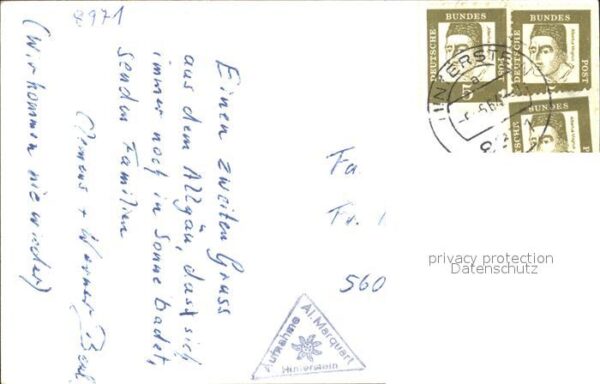 8971
Einen zweiten Gruss
aus dem Allgäu, das sich
immer noch in Sonne badet,
senden Familien
Clemens + Werner
(Wir kommen nie wieder)
DEUTSCHE BUNDES POST
DEUTSCHE BUNDES POST
DEUTSCHE BUNDES
Fa.
Fr.
560
privacy protection
Datenschutz
Aufnahme Al. Marquart
Hinterstein